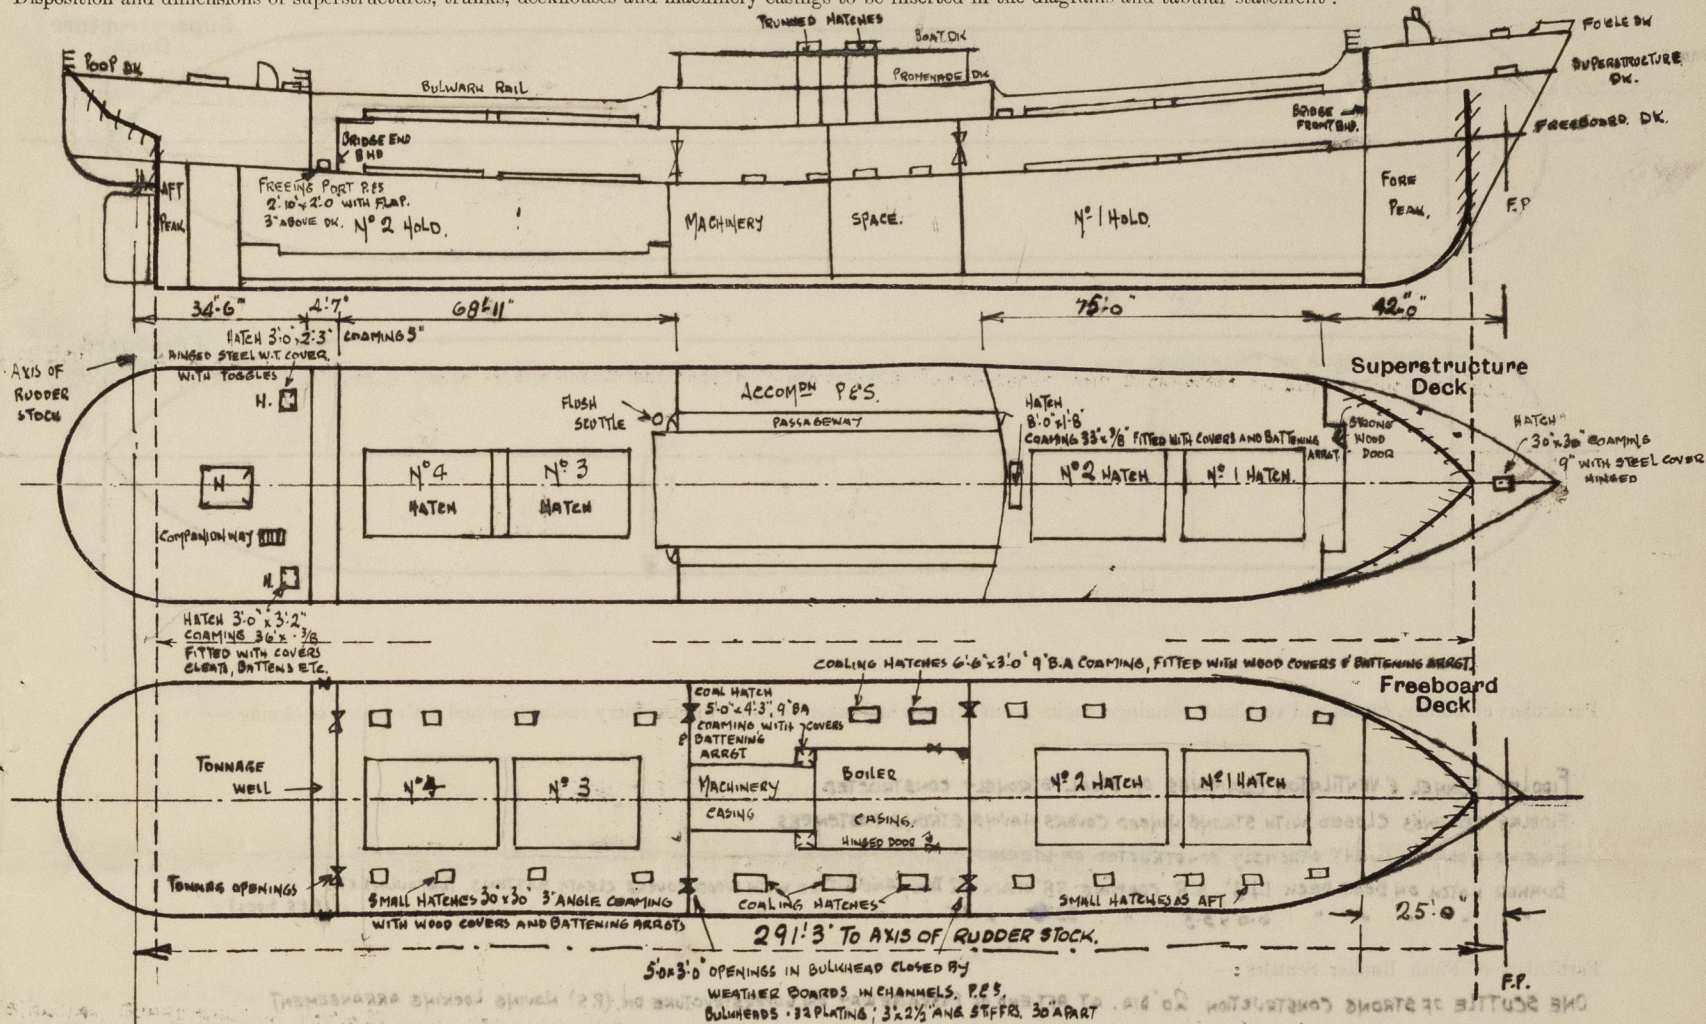 Disposition and dimensions of superstructures, trunks, deckhouses and machinery casings to be inserted in the diagrams and tabular statement:
TRUNKED HATCHES
BOAT DK
PROMENADE DK
FO'C'LE DK
SUPERSTRUCTURE
DK.
FREEBOARD. DK.
POOP DK
BULWARK RAIL
BRIDGE
FRONT BHD.
BRIDGE END
BHD
FREEING PORT P.&S
2'-10" x 2'-0 WITH FLAP.
3" ABOVE DK.
AFT
PEAK
Nº 2 HOLD.
MACHINERY
SPACE.
Nº 1 HOLD.
FORE
PEAK.
F.P
34'-6"
4'-7"
68'-11"
75'-0"
42'-0"
HATCH 3'-0" x 2'-3" COAMING 5"
HINGED STEEL W.T. COVER.
WITH TOGGLES
AXIS OF
RUDDER
STOCK
H.
FLUSH
SCUTTLE
ACCOMDN P&S.
PASSAGEWAY
HATCH
8'-0" x 1'-8"
COAMING 33" x 3/8" FITTED WITH COVERS AND BATTENING
ARRGT.
Superstructure
Deck
STRONG
WOOD
DOOR
HATCH
30" x 30" COAMING
9" WITH STEEL COVER
HINGED
H
Nº 4
HATCH
Nº 3
HATCH
Nº 2 HATCH
Nº 1 HATCH.
COMPANIONWAY
H.
HATCH 3'-0" x 3'-2"
COAMING 36" x 3/8
FITTED WITH COVERS
CLEATS, BATTENS ETC.
COALING HATCHES 6'-6" x 3'-0" 9" B.A COAMING, FITTED WITH WOOD COVERS & BATTENING ARRGT.
Freeboard
Deck
COAL HATCH
5'-0" x 4'-3", 9" BA
COAMING WITH COVERS
& BATTENING
ARRGT
TONNAGE
WELL
Nº 4
Nº 3
MACHINERY
CASING
BOILER
CASING.
HINGED DOOR
Nº 2 HATCH
Nº 1 HATCH
TONNAGE OPENINGS
SMALL HATCHES 30" x 30" 3" ANGLE COAMING
WITH WOOD COVERS AND BATTENING ARRGTS
COALING HATCHES
SMALL HATCHES AS AFT
25'-0"
291'-3" TO AXIS OF RUDDER STOCK.
5'-0 x 3'-0" OPENINGS IN BULKHEAD CLOSED BY
WEATHER BOARDS IN CHANNELS. P.&S.
BULKHEADS .32 PLATING; 3" x 2½" ANG STFFRS. 30" APART
F.P.